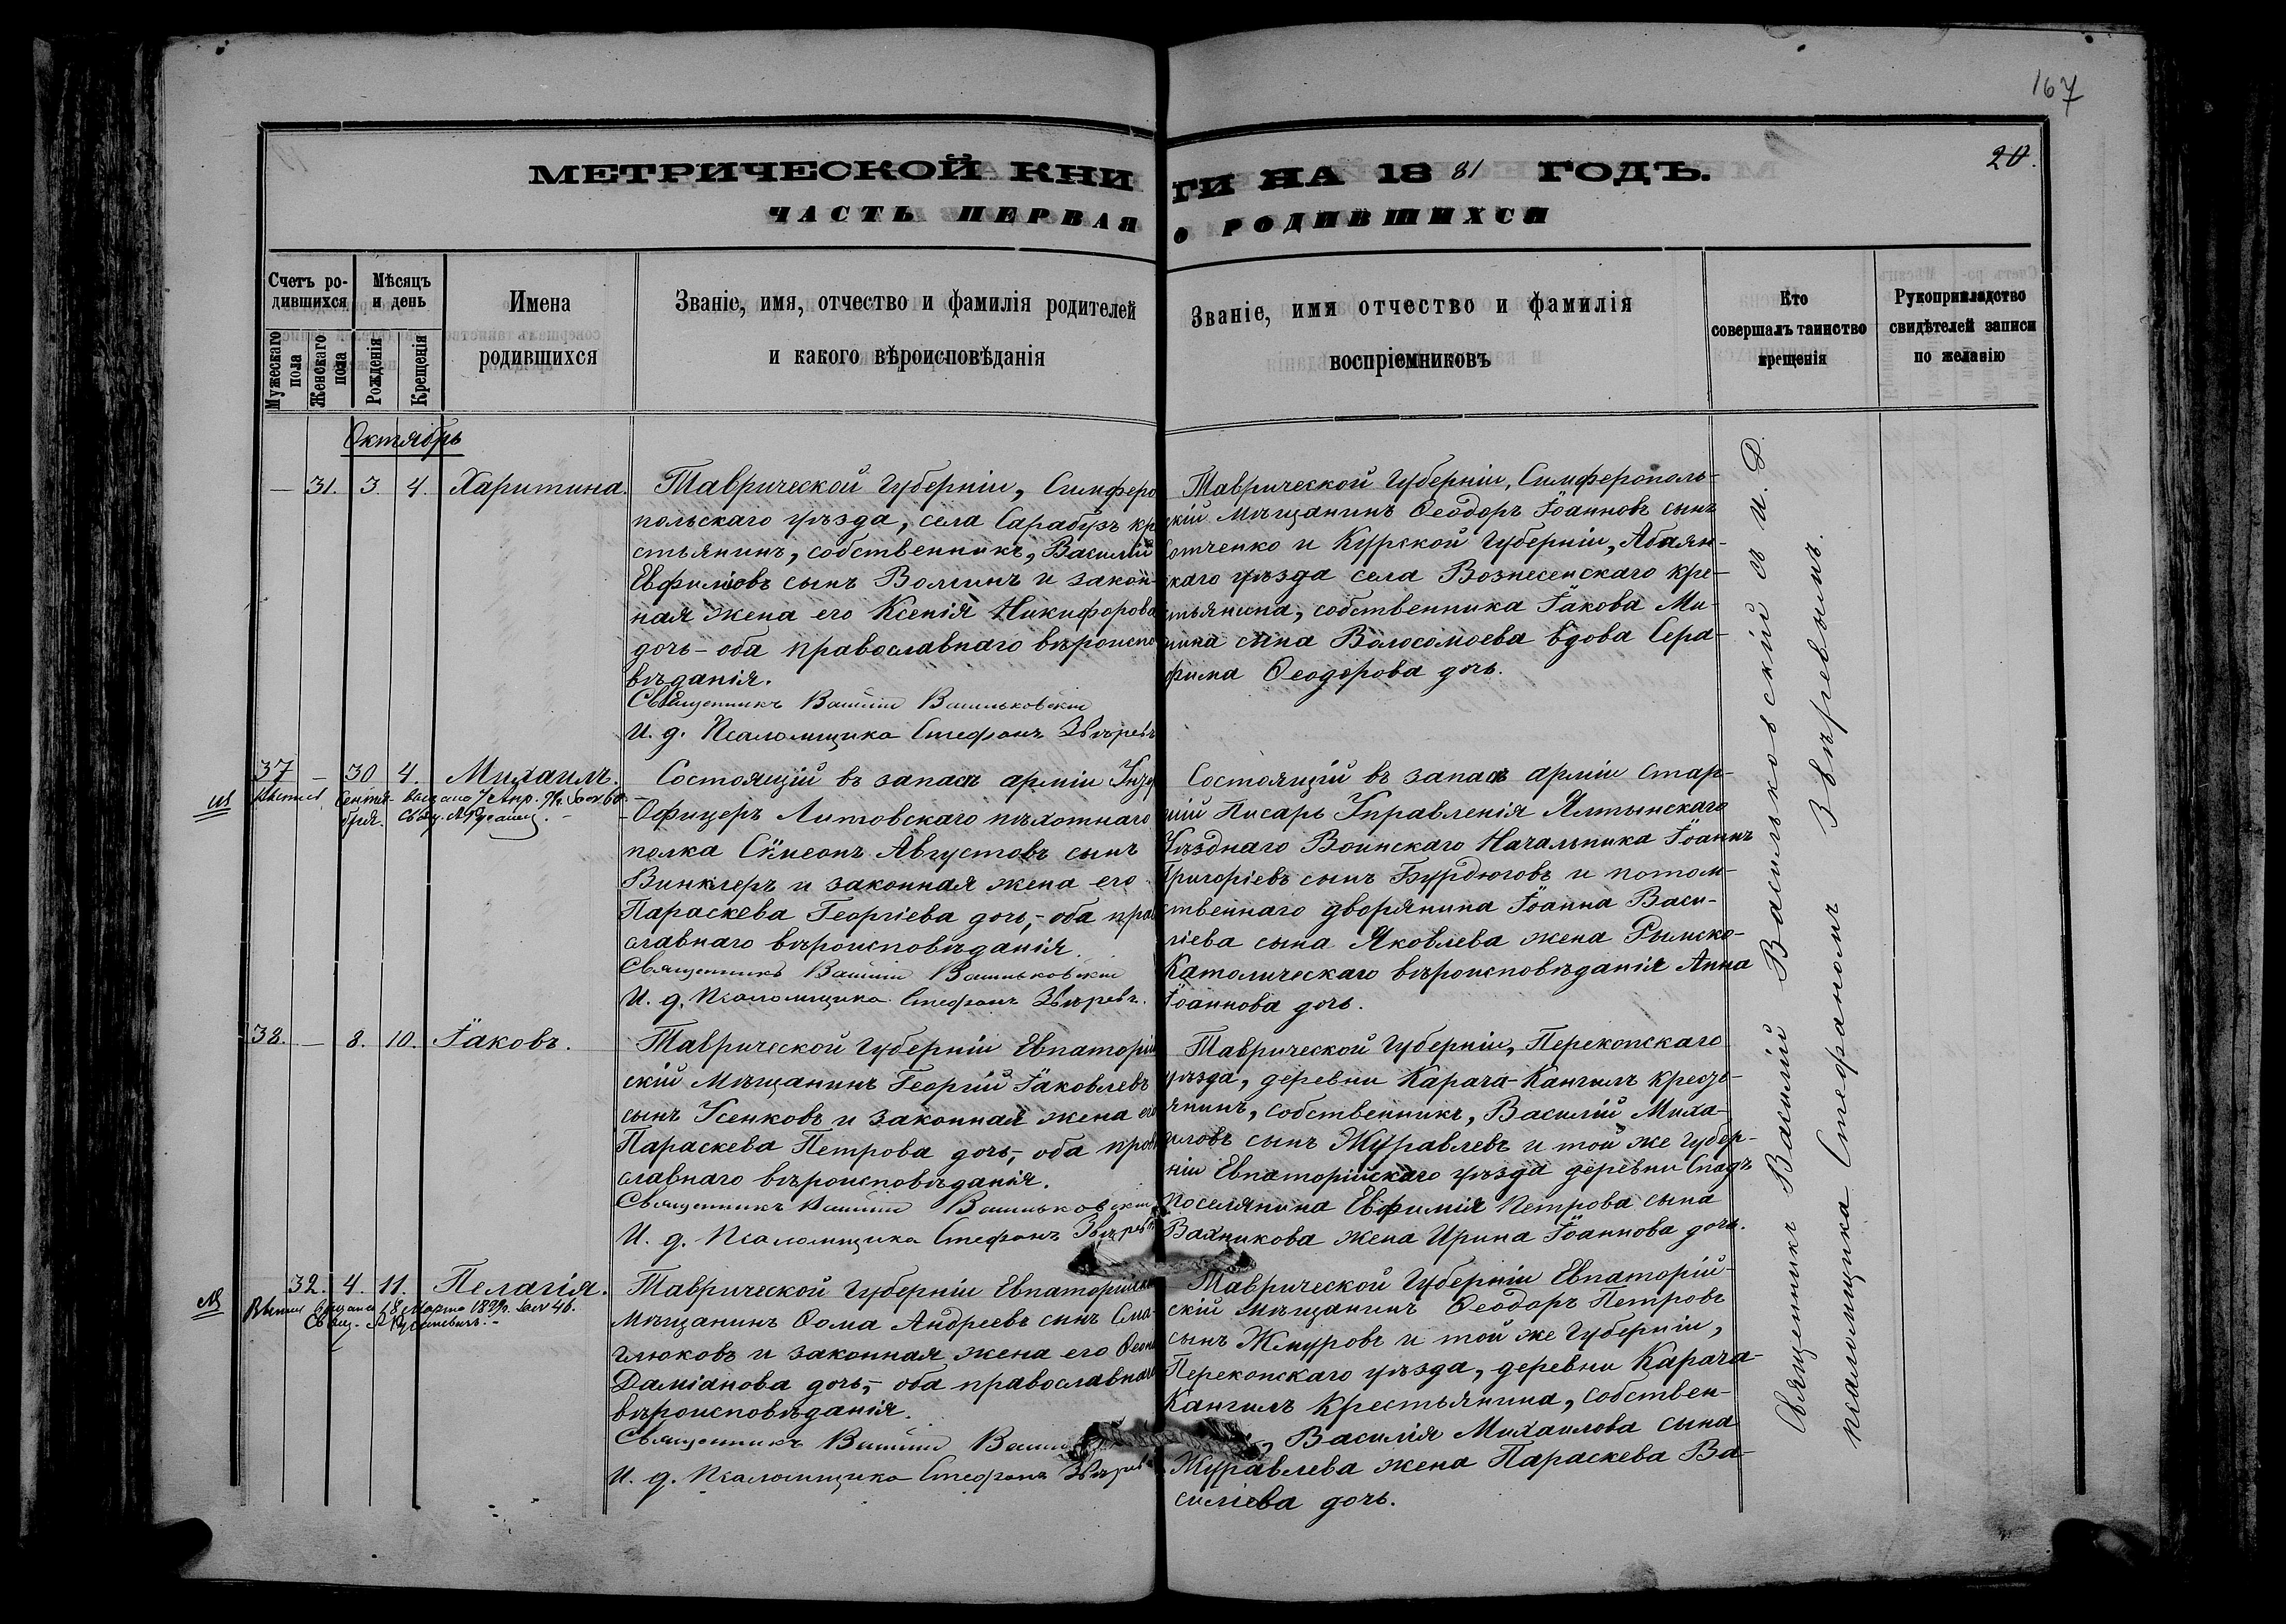 167
20.
МЕТРИЧЕСКОЙ КНИГИ НА 1881 ГОДЪ.
ЧАСТЬ ПЕРВАЯ О РОДИВШИХСЯ
Счетъ ро-
дившихся
Мужескаго пола
Женскаго пола
Мѣсяцъ
и день
Рожденія
Крещенія
Имена
родившихся
Званіе, имя, отчество и фамилія родителей
и какого вѣроисповѣданія
Званіе, имя отчество и фамилія
воспріемниковъ
Кто
совершалъ таинство
крещенія
Рукоприкладство
свидѣтелей записи
по желанію
Октябрь
— 31. 3. 4. Харитина.
Таврической Губерніи, Симферо
польскаго уѣзда, села Сарабузъ кр
стьянинъ, собственникъ, Василій
Евфиміовъ сынъ Волгинъ и закон-
ная жена его Ксенія Никифорова
дочь - оба православнаго вѣроиспо
вѣданія.
Священникъ Василій Васильковскій
И. д. Псаломщика Стефанъ Звѣревъ
Таврической Губерніи, Симферополь-
скій Мѣщанинъ Ѳеодоръ Іоанновъ сынъ
отченко и Курской Губерніи, Абаян-
скаго уѣзда села Вознесенскаго кре-
стьянина, собственника Іакова Ми-
нина сына Волосомоева вдова Сера-
фима Ѳеодорова дочь.
37 — 30 4. Михаилъ.
Сентя-
бря.
Состоящій въ запасѣ арміи Унте
-Офицеръ Литовскаго пѣхотнаго
полка Сѵмеонъ Августовъ сынъ
Винклеръ и законная жена его
Параскева Георгіева дочь,- оба пра
славнаго вѣроисповѣданія.
Священникъ Василій Васильковскій
И. д. Псаломщика Стефанъ Звѣревъ.
Состоящій въ запасѣ арміи Стар-
шій Писарь Управленія Ялтынскаго
Уѣзднаго Воинскаго Начальника Іоаннъ
Григоріевъ сынъ Бурдюговъ и потом-
ственнаго дворянина Іоанна Васи-
ліева сына Яковлева жена Римско-
Католическаго вѣроисповѣданія Анна
Іоаннова дочь.
38. — 8. 10. Іаковъ.
Таврической Губерніи Евпаторій
скій Мѣщанинъ Георгій Іаковлевъ
сынъ Усенковъ и законная жена его
Параскева Петрова дочь,- оба прав
славнаго вѣроисповѣданія.
Священникъ Василій Васильковскій
И. д. Псаломщика Стефанъ Звѣревъ
Таврической Губерніи, Перекопскаго
уѣзда, деревни Карача-Кангилъ кресть-
янинъ, собственникъ, Василій Миха-
иловъ сынъ Журавлевъ и той же Губер-
ніи Евпаторійскаго уѣзда деревни Спатъ
поселянина Евфимія Петрова сына
Вахникова жена Ирина Іоаннова дочь.
32. 4. 11. Пелагія.
Таврической Губерніи Евпаторійскій
Мѣщанинъ Ѳома Андреевъ сынъ Сма-
глюковъ и законная жена его
Даміанова дочь,- оба православнаго
вѣроисповѣданія.
Священникъ Василій
И. д. Псаломщика Стефанъ Звѣревъ
Таврической Губерніи Евпаторій-
скій Мѣщанинъ Ѳеодоръ Петровъ
сынъ Жмуровъ и той же Губерніи,
Перекопскаго уѣзда, деревни Карача-
Кангилъ Крестьянина, собствен-
Василія Михаилова сына
Журавлева жена Параскева Ва-
силіева дочь.
Священникъ Василій Васильковскій съ И. Д.
псаломщика Стефаномъ Звѣревымъ.